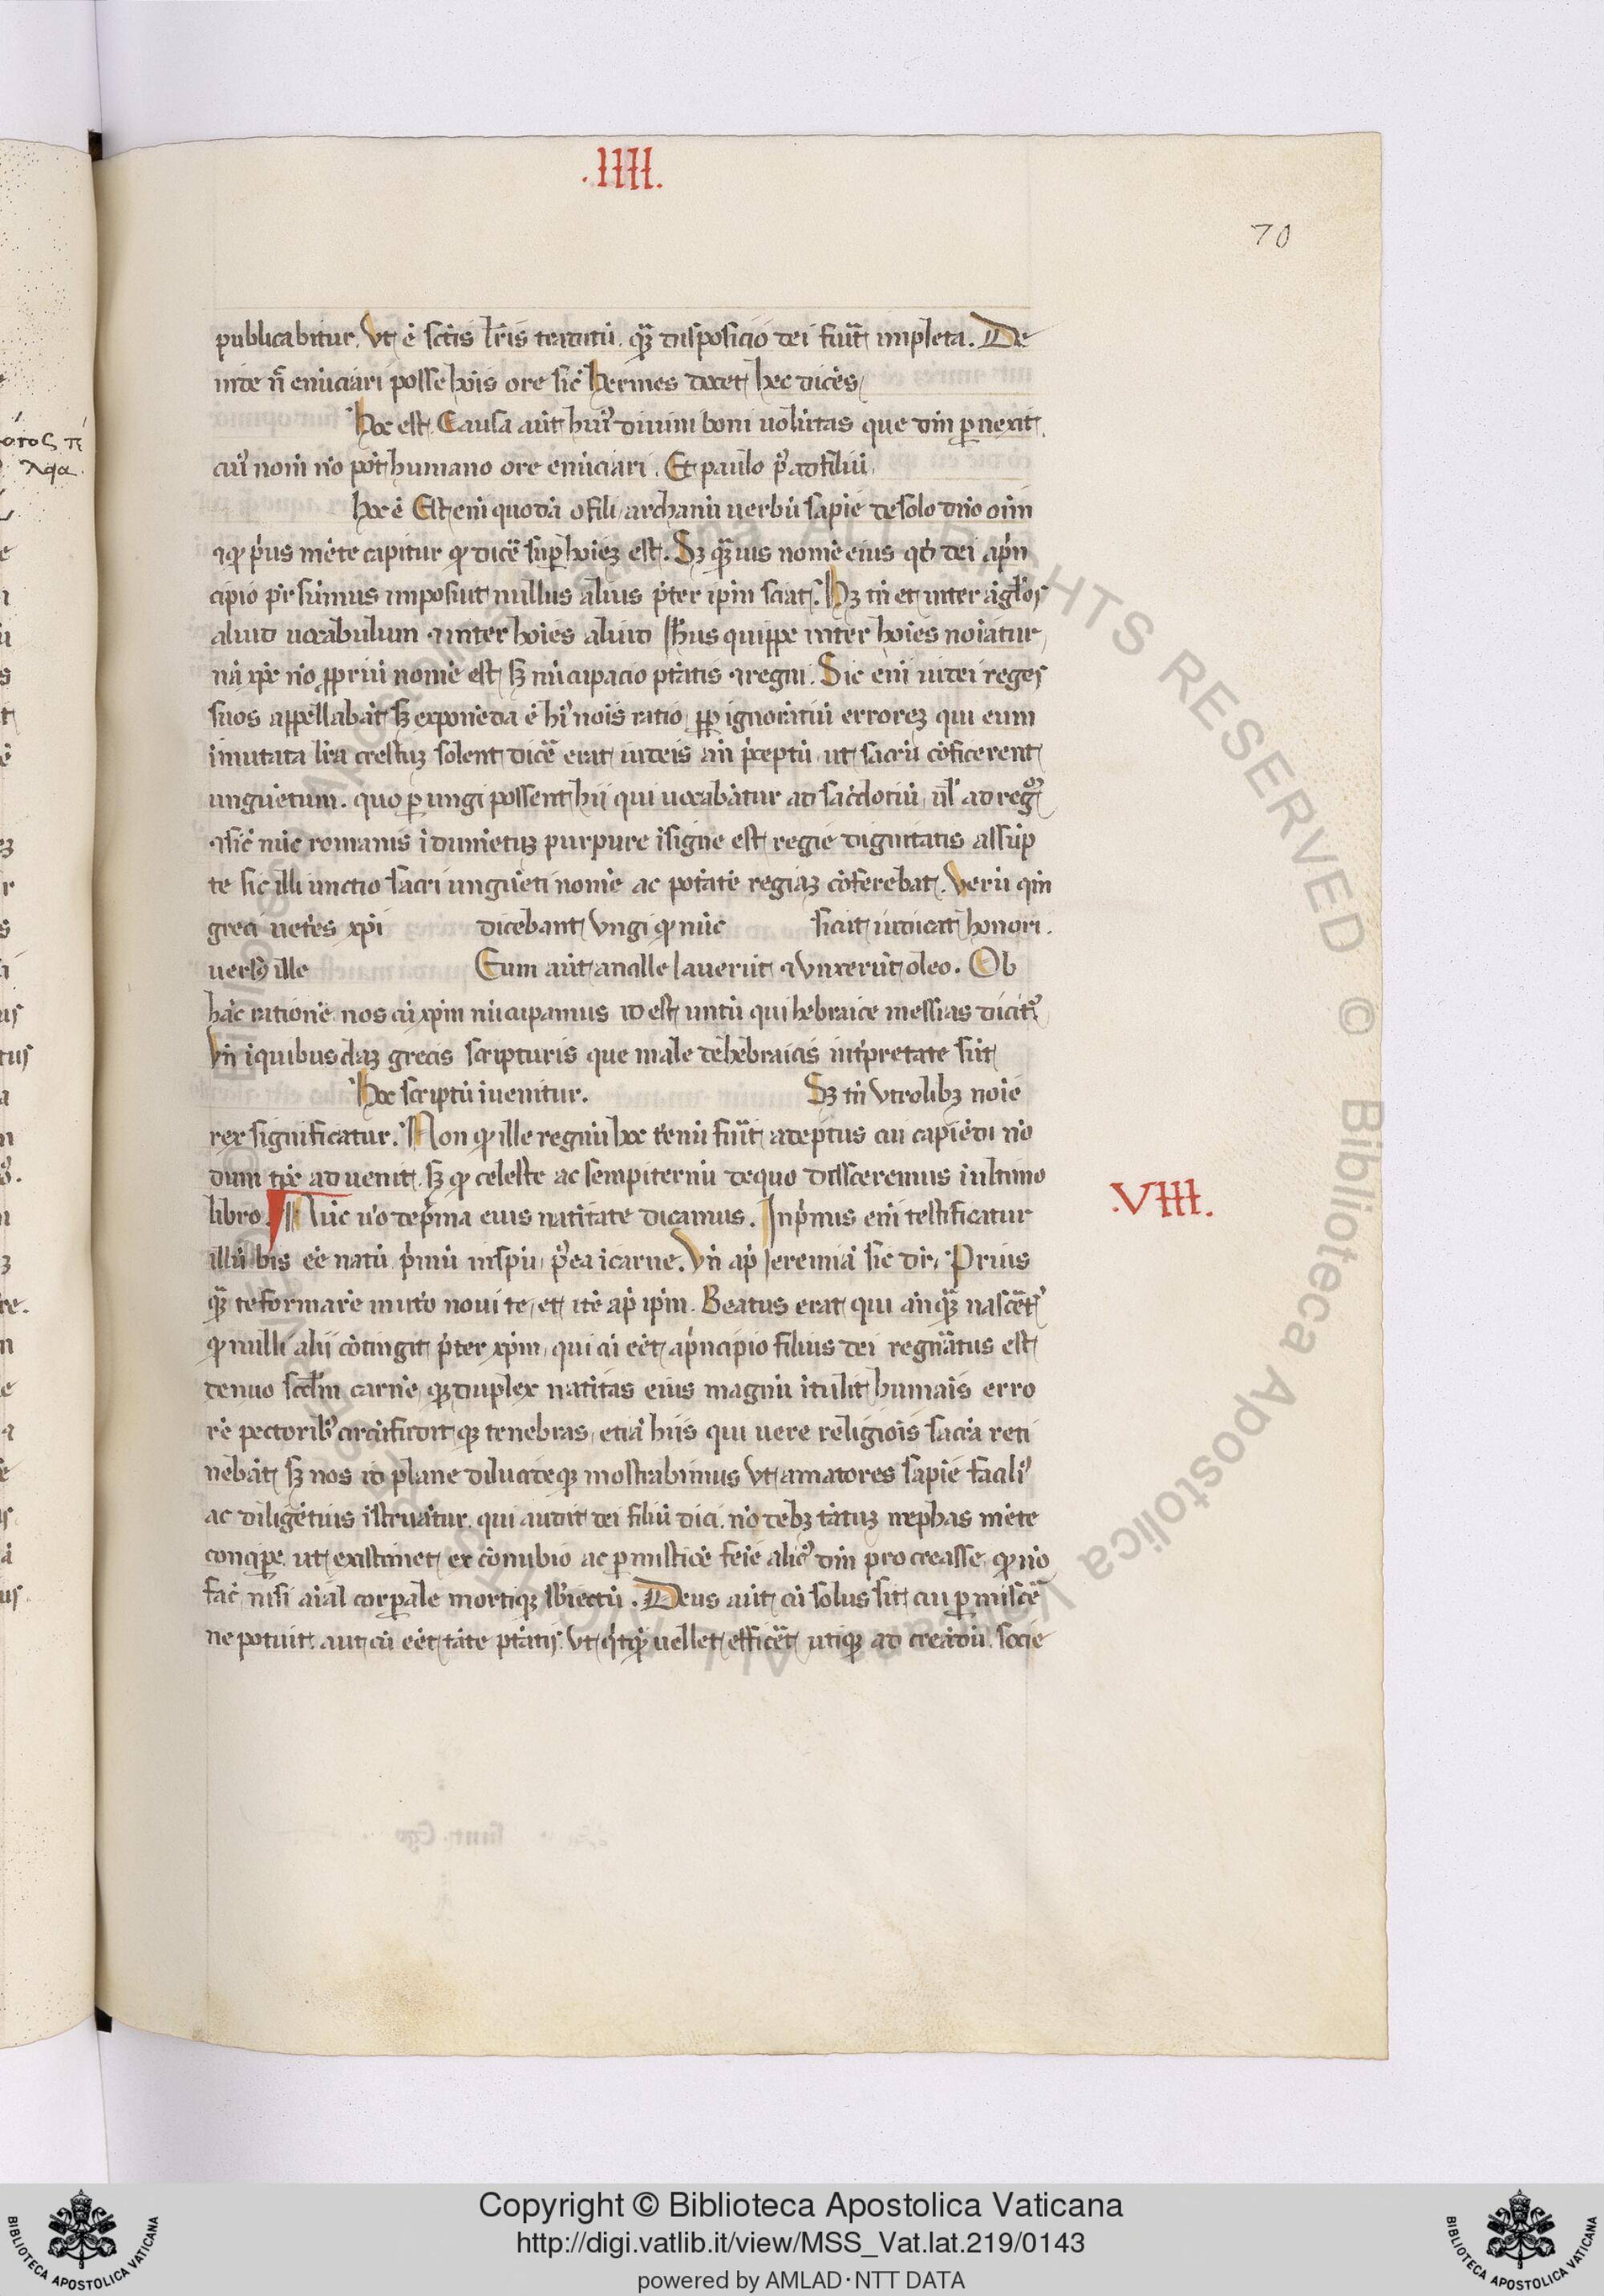 .IIII.
70
publicabitur. Vt ē sctīs lrīs traditū. qn̄ disposicio dei fiūt impleta. De
inde n̄ enūciari posse hoīs ore sic̄ hermes docet hec dicēs
hoc est. Causa aūt huiꝰ diuini boni uolūtas que dm̄ ꝓuexit
cuiꝰ nom̄ nō pōt humano ore enūciari. Et paulo pꝰ ad filiū.
hoc ē Est eni quodā o fili archanū uerbū sapiē de solo dn̄o oīm
⁊ꝙ pͥus mēte capitur ꝙ dicē suꝑ hoīeꝫ est. Sꝫ quāuis nomē eius qd̓ dei apͥn
cipio pr̄ sūmus imposuit nullus alius pͥter ipm̄ sciat. Hꝫ tn̄ et inter āglōs
aliud uocabulum ⁊ inter hoīes aliud Ihus quippe inter hoīes noīatur
nā xpc̄ nō ꝓpriū nomē est sꝫ nūcupacio ptātis ⁊ regni. Sic eni iudei reges
suos appellabāt sꝫ exponēda ē hiꝰ noīs ratio ꝓp ignorātiū erroreꝫ qui eum
imutata lrā crestuꝫ solent dicē erat iudeis ān pͥceptū ut sacrū cōficerent
unguētum. quo ꝑungi possent hii qui uocabātur ad sacdotiū ul̓ ad regꝰ
⁊ sic̄ nūc romanis idumētuꝫ purpure isigne est regie dignitatis assūp
te sic illi unctio sacri unguēti nomē ac potātē regiaꝫ cōferebat. Verū qm̄
greci uetēs xpi dicebant Vngi ꝙ nūc sicut iudicat honori.
uersꝰ ille Eum aūt ancille lauerūt ⁊ Vnxerūt oleo. Ob
hāc rationē nos cū xpm̄ nūcupamus id est untū qui hebraice messias dicitꝰ
Vn̄ iquibusdaꝫ grecis scripturis que male dehebraicis intꝑpretate sūt
hoc scriptū iuenitur. Sꝫ tn̄ Vtrolibꝫ noīe
rex significatur. Non ꝙ ille regnū hoc tenū fiūt adeptus cui capiēdi nō
dum tpꝰ aduenit sꝫ ꝙ celeste ac sempiternū de quo disseremus iultimo
libro. Nūc uo de pͥma eius natitate dicamus. Inpͥmis eni testificatur
.VIII.
illū bis eē natū pͥmū inspū pꝰea icarne. Vn̄ ap̄ Jeremiā sic dr̄. Prius
qͣ te formarē inutō noui te, et itē ap̄ ipm̄. Beatus erat qui ānqͣ nascētꝰ
ꝙ nulli alii cōtingit pͥter xpm̄, qui cū eēt apͥncipio filius dei regnātus est
denuo scd̓m carnē, qͣ duplex natitas eius magnū itulit humaīs erro
rē pectoribꝰ circūfudit qꝫ tenebras, etiā hiis qui uere religiōis sacrā reti
nebāt sꝫ nos id plane dilucideqꝫ mostrabimus Vt amatores sapiē faciliꝰ
ac diligētius istruātur. qui audit dei filiū dici. nō debꝫ tātuꝫ nephas mēte
concipe, ut existimet ex cōnubio ac ꝑmisticē feīe alicꝰ dm̄ procreasse, ꝙ nō
fac̄ nisi aīal corꝑale mortiqꝫ sbiectū. Deus aūt cū solus sit cui ꝑmiscē
ne potuit aut cū eēt tāte ptātis. Vt qͥcqͥd uellet efficēt utiqꝫ ad creādū socie
Copyright © Biblioteca Apostolica Vaticana
http://digi.vatlib.it/view/MSS_Vat.lat.219/0143
powered by AMLAD·NTT DATA